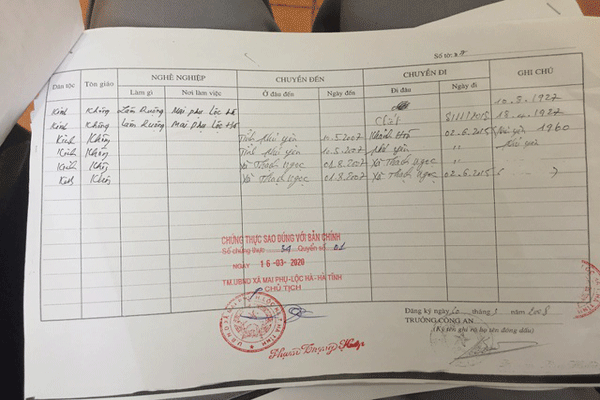 Số tờ:
Dân tộc Tôn giáo NGHỀ NGHIỆP CHUYỂN ĐẾN CHUYỂN ĐI GHI CHÚ
Làm gì Nơi làm việc Ở đâu đến Ngày đến Đi đâu Ngày đi
Kinh Không Làm Ruộng Mai phụ Lộc Hà 10.8.1927
Kinh Không Làm Ruộng Mai Phụ Lộc Hà Chết 18.4.1927
Kinh Không Tỉnh Phú yên 10.5.2007 Khánh Hoà 02.6.2015 1960
Kinh Không Tỉnh Phú yên 10.5.2007 Phú yên " Phú yên
Kinh Không Xã Thạch Ngọc 01.8.2007 Xã Thạch Ngọc "
Kinh Không Xã Thạch Ngọc 01.8.2007 Xã Thạch Ngọc 02.6.2015
CHỨNG THỰC SAO ĐÚNG VỚI BẢN CHÍNH
Số chứng thực 34 Quyển số 01
NGÀY 16-03-2020
TM.UBND XÃ MAI PHỤ-LỘC HÀ-HÀ TĨNH
CHỦ TỊCH
Đăng ký ngày 20 tháng 3 năm 2008
TRƯỞNG CÔNG AN
(Ký tên ghi rõ họ tên đóng dấu)